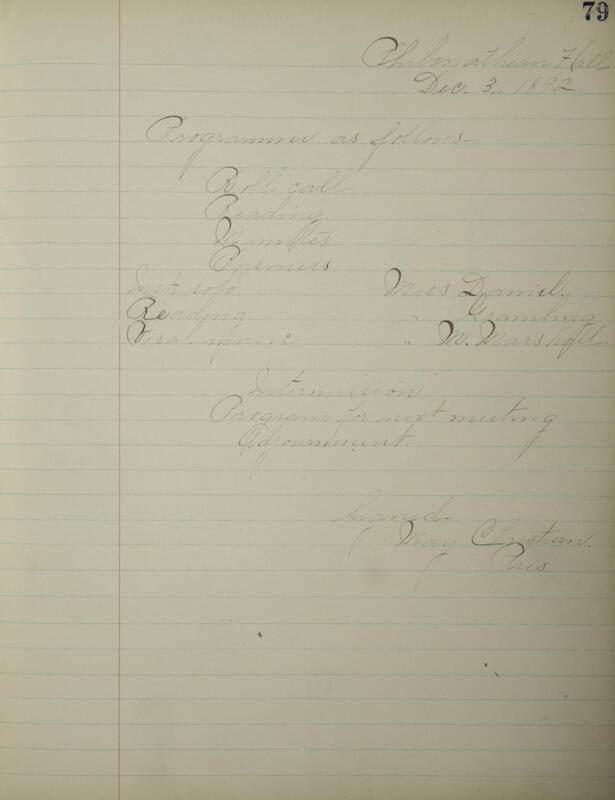 79
Philomathean Hall
Dec. 3. 1892.
Programme as follows—
Roll call.
Reading
Minutes
Business
Inst. solo Miss Daniel,
Reading " Grambling
Vocal music " M. Marshall.
Intermission
Program for next meeting
Adjournment.
Signed—
May Christian.
Pres.